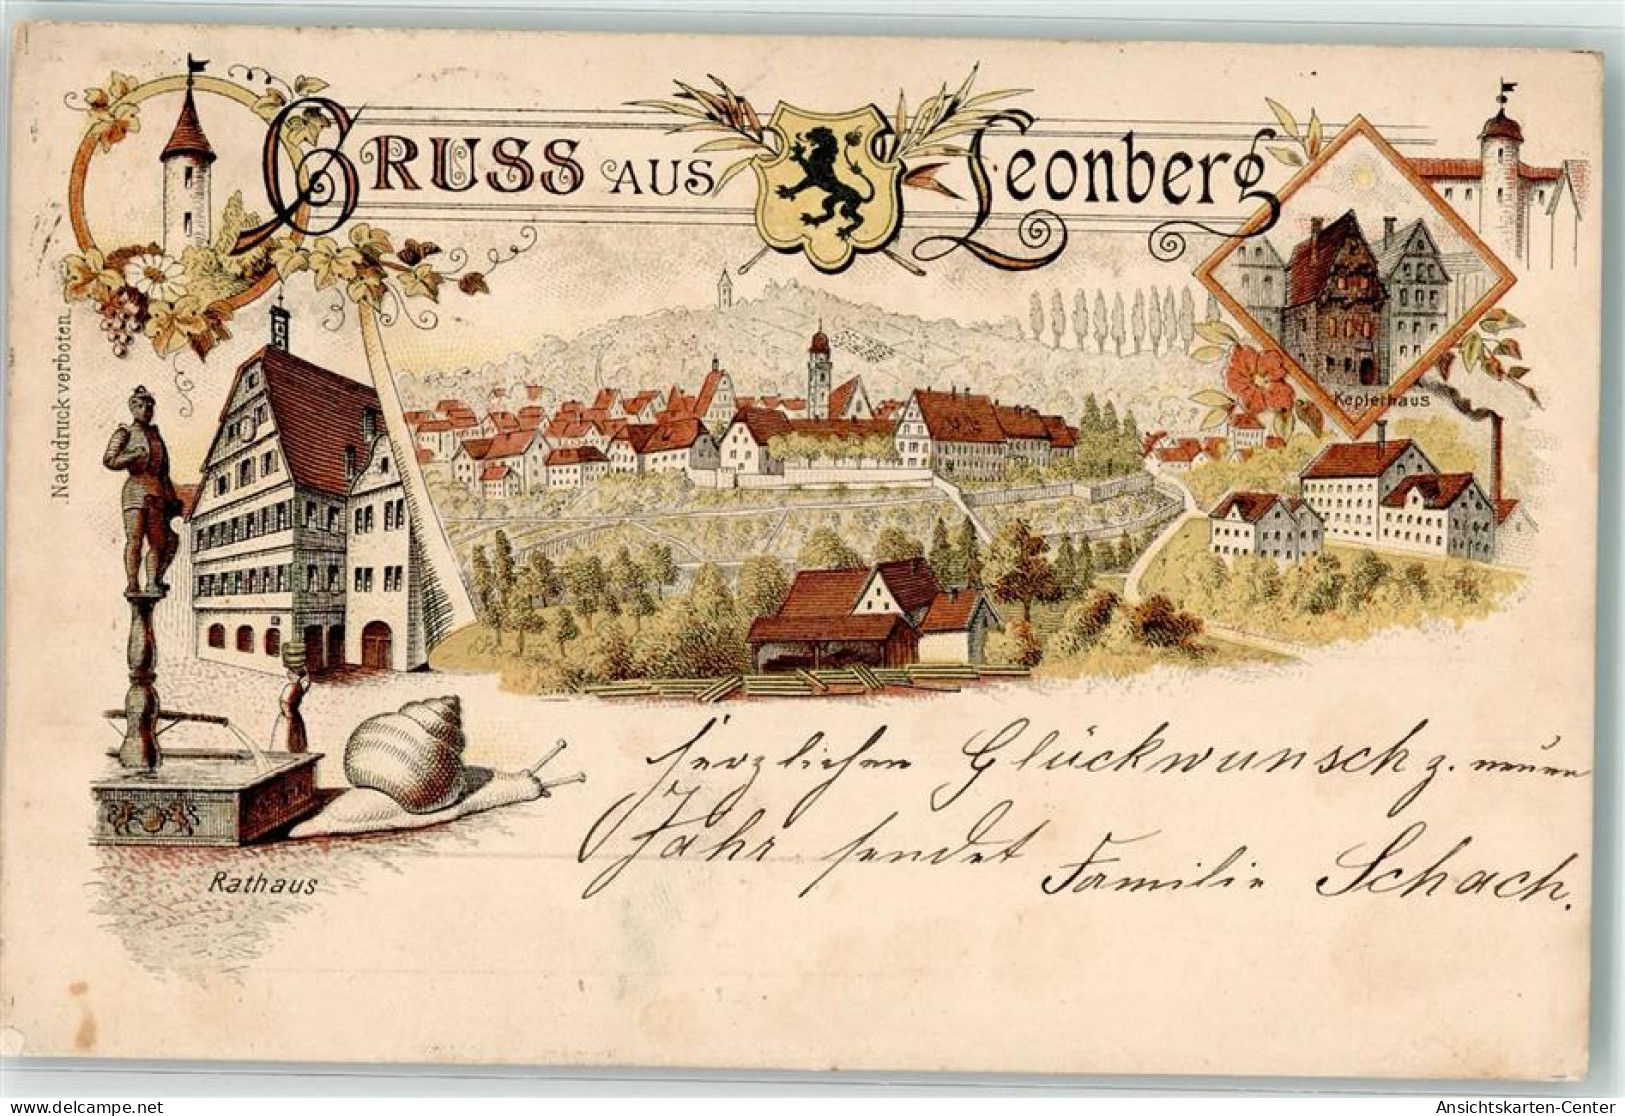 GRUSS AUS Leonberg
Nachdruck verboten.
Keplerhaus
Rathaus
herzlichen Glückwunsch z. neuen
Jahr sendet Familie Schach.
delcampe.net
Ansichtskarten-Center